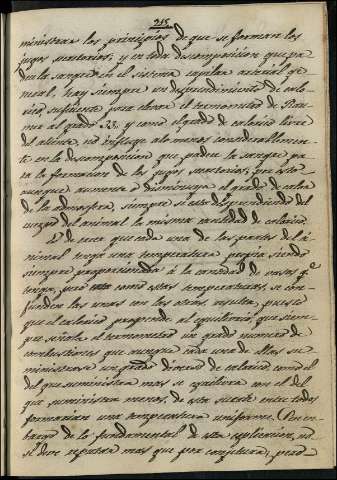 215
ministrar los principios de que se forman los
jugos nutricios; y en toda descomposicion que pa-
dece la sangre en el sistema capilar arterial ge-
neral, hay siempre un desprendimiento de calo-
rico, suficiente para elevar el termometro de Reau-
mur al grado 32. y como el grado de calorico libre
del aliento, no influye alo menos considerablemen-
te en la descomposicion que padece la sangre pa-
ra la formacion de los jugos nutricios; por esto
aunque aumente o disminuya el grado de calor
de la admosfera, siempre se esta desprendiendo del
cuerpo del animal la misma cantidad de calorico.
de cuca que cada una de las partes del a-
nimal tenga una temperatura propia siendo
siempre proporcionada á la cantidad de vasos qᵉ
tenga, pero como estas temperaturas se con-
funden las unas con las otras, resulta, puesto
que el calorico propende al equilibrio, que siem-
pre señala el termometro un grado numero de
combustiones que aunque cada una de ellas su-
ministrase un grado diverso de calorico como el
del que suministra mas se equilibra con el del
que suministra menos, de esta suerte entre todos
formarian una temperatura uniforme. Sin em-
bargo de lo fundamental de esta esplicacion, no
se deve reputar mas que por conjetura, pero